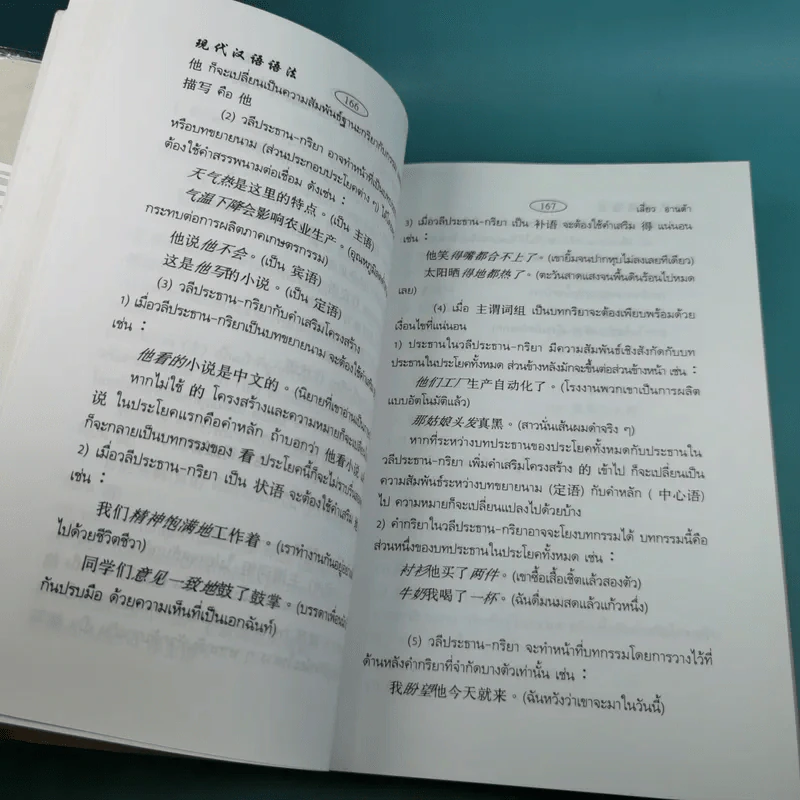 现代汉语语法
166
他 ก็จะเปลี่ยนเป็นความสัมพันธ์ฐานะกริยากับกรรม
描写 คือ 他
(2) วลีประธาน-กริยา อาจทำหน้าที่เป็น
หรือบทขยายนาม (ส่วนประกอบประโยคต่าง ๆ) ได้
ต้องใช้คำสรรพนามต่อเชื่อม ดังเช่น :
天气热是这里的特点。(เป็น 主语)
气温下降会影响农业生产。(อุณหภูมิ
กระทบต่อการผลิตภาคเกษตรกรรม)
他说他不会。(เป็น 宾语)
这是他写的小说。(เป็น 定语)
(3) วลีประธาน-กริยากับคำเสริมโครงสร้าง
1) เมื่อวลีประธาน-กริยาเป็นบทขยายนาม จะต้องใช้คำ
เช่น :
他看的小说是中文的。(นิยายที่เขาอ่านเป็น
หากไม่ใช้ 的 โครงสร้างและความหมายก็จะ
说 ในประโยคแรกคือคำหลัก ถ้าบอกว่า 他看小说
ก็จะกลายเป็นบทกรรมของ 看 ประโยคนี้ก็จะไม่ราบรื่น
2) เมื่อวลีประธาน-กริยา เป็น 状语 จะต้องใช้คำเสริม
เช่น :
我们精神饱满地工作着。(เราทำงานกันอยู่อย่าง
ไปด้วยชีวิตชีวา)
同学们意见一致地鼓了鼓掌。(บรรดาเพื่อน
กันปรบมือ ด้วยความเห็นที่เป็นเอกฉันท์)
167 เสี่ยว อานต้า
3) เมื่อวลีประธาน-กริยา เป็น 补语 จะต้องใช้คำเสริม 得 แน่นอน
เช่น :
他笑得嘴都合不上了。(เขายิ้มจนปากหุบไม่ลงเลยทีเดียว)
太阳晒得地都热了。(ตะวันสาดแสงจนพื้นดินร้อนไปหมด
เลย)
(4) เมื่อ 主谓词组 เป็นบทกริยาจะต้องเพียบพร้อมด้วย
เงื่อนไขที่แน่นอน
1) ประธานในวลีประธาน-กริยา มีความสัมพันธ์เชิงสังกัดกับบท
ประธานในประโยคทั้งหมด ส่วนข้างหลังมักจะขึ้นต่อส่วนข้างหน้า เช่น :
他们工厂生产自动化了。(โรงงานพวกเขาเป็นการผลิต
แบบอัตโนมัติแล้ว)
那姑娘头发真黑。(สาวนั่นเส้นผมดำจริง ๆ)
หากที่ระหว่างบทประธานของประโยคทั้งหมดกับประธานใน
วลีประธาน-กริยา เพิ่มคำเสริมโครงสร้าง 的 เข้าไป ก็จะเปลี่ยนเป็น
ความสัมพันธ์ระหว่างบทขยายนาม (定语) กับคำหลัก ( 中心语)
ไป ความหมายก็จะเปลี่ยนแปลงไปด้วยบ้าง
2) คำกริยาในวลีประธาน-กริยาอาจจะโยงบทกรรมได้ บทกรรมนี้คือ
ส่วนหนึ่งของบทประธานในประโยคทั้งหมด เช่น :
衬衫他买了两件。(เขาซื้อเสื้อเชิ้ตแล้วสองตัว)
牛奶我喝了一杯。(ฉันดื่มนมสดแล้วแก้วหนึ่ง)
(5) วลีประธาน-กริยา จะทำหน้าที่บทกรรมโดยการวางไว้ที่
ด้านหลังคำกริยาที่จำกัดบางตัวเท่านั้น เช่น :
我盼望他今天就来。(ฉันหวังว่าเขาจะมาในวันนี้)